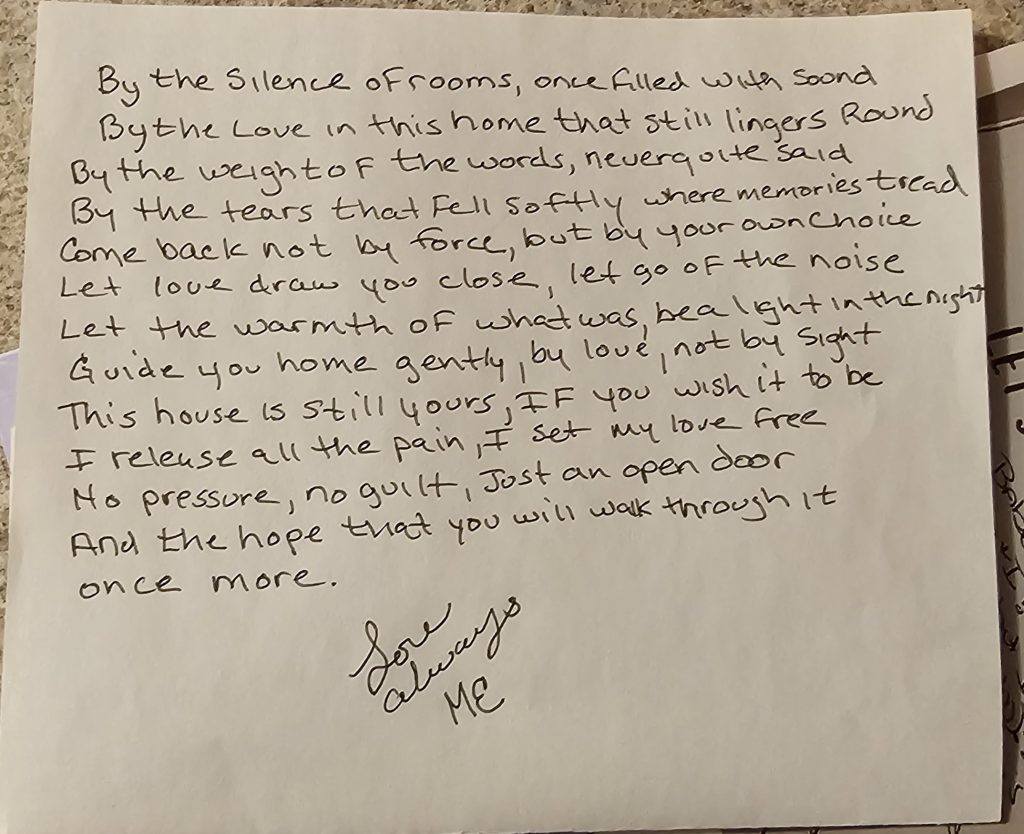 By the Silence of rooms, once filled with Sound
By the Love in this home that still lingers Round
By the weight of the words, never quite said
By the tears that Fell Softly where memories tread
Come back not by force, but by your own Choice
Let love draw you close, let go of the noise
Let the warmth of what was, be a light in the night
Guide you home gently, by love, not by Sight
This house is Still yours, IF you wish it to be
I release all the pain, I set my love free
No pressure, no guilt, Just an open door
And the hope that you will walk through it
once more.
Love
always
ME